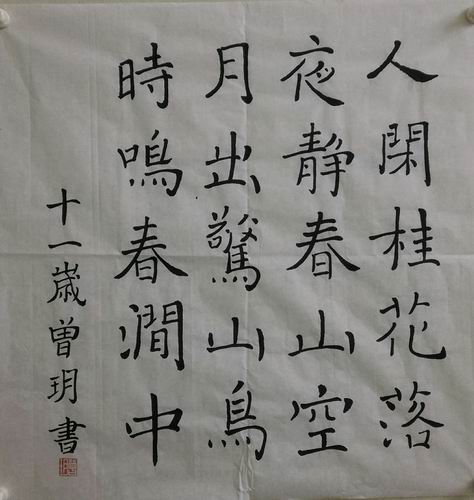 人閑桂花落
夜靜春山空
月出驚山鳥
時鳴春澗中
十一歲曾玥書